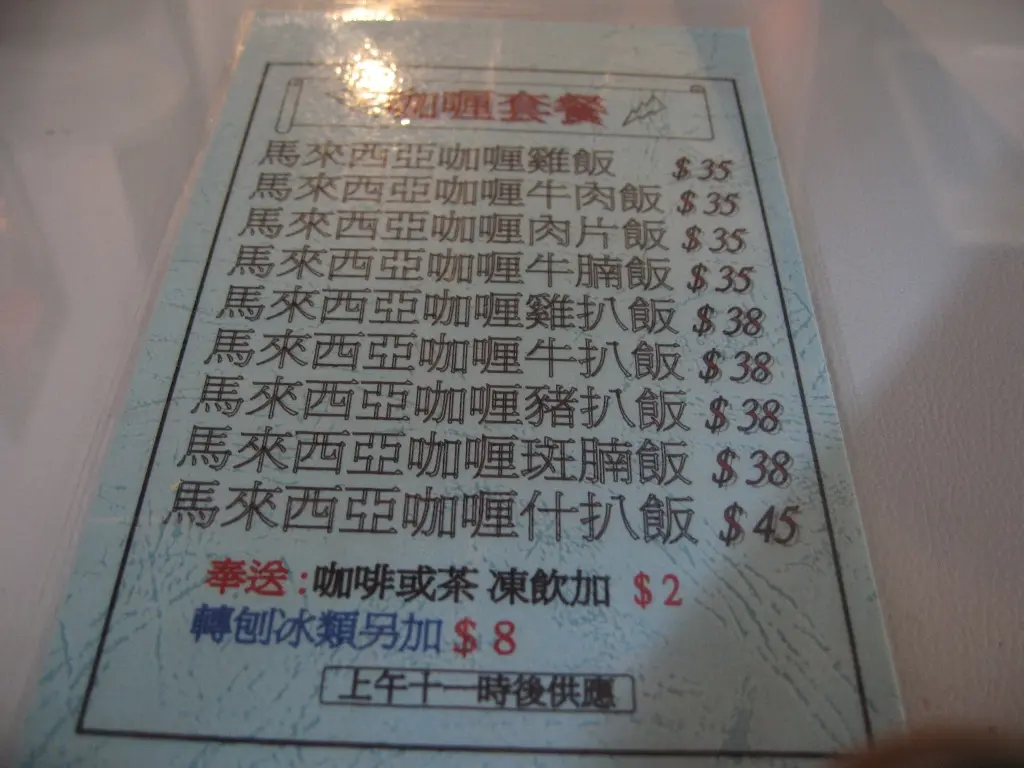 咖喱套餐
馬來西亞咖喱雞飯 $35
馬來西亞咖喱牛肉飯 $35
馬來西亞咖喱肉片飯 $35
馬來西亞咖喱牛腩飯 $35
馬來西亞咖喱雞扒飯 $38
馬來西亞咖喱牛扒飯 $38
馬來西亞咖喱豬扒飯 $38
馬來西亞咖喱斑腩飯 $38
馬來西亞咖喱什扒飯 $45
奉送:咖啡或茶 凍飲加 $2
轉刨冰類另加 $8
上午十一時後供應